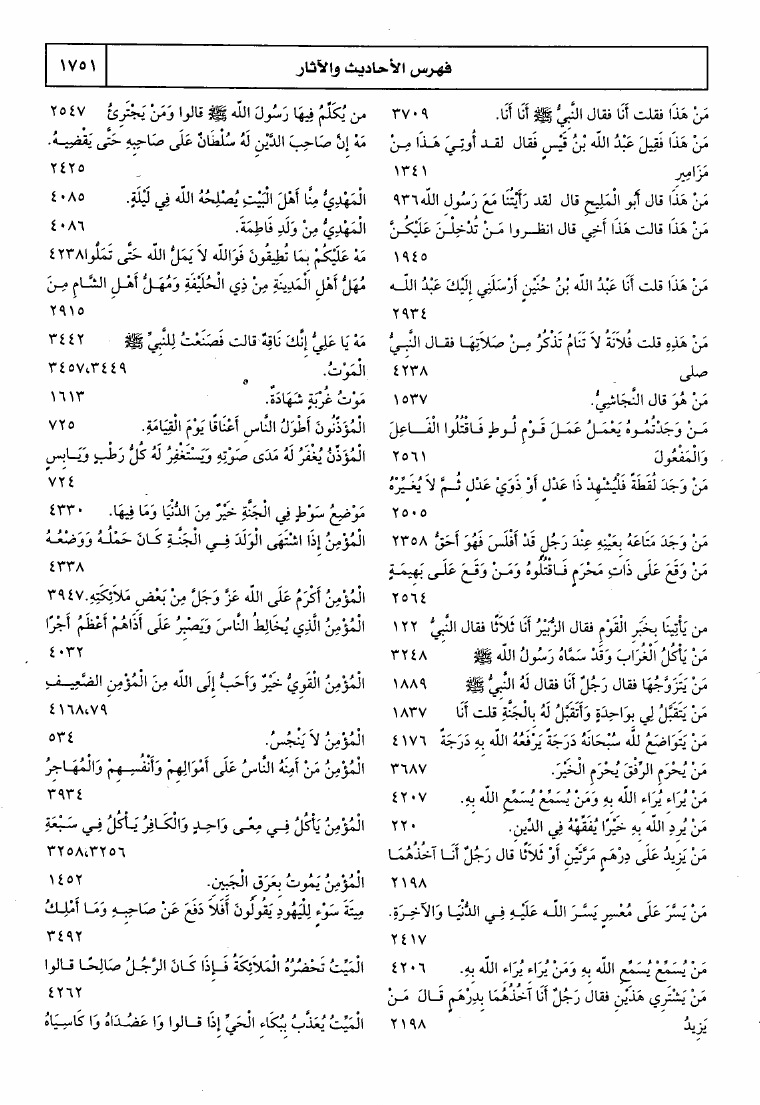 فهرس الأحاديث والآثار ١٧٥١
مَنْ هَذَا فقلت أَنَا فقال النَّبِيُّ ﷺ أَنَا أَنَا. ٣٧٠٩
مَنْ هَذَا فَقِيلَ عَبْدُ اللّه بْنُ قَيْسٍ فَقال لقـد أُوتِيَ هَـذَا مِـنْ
مَزَامِيرِ ١٣٤١
مَنْ هَذَا قال أَبُو الْمَلِيحِ قال لقد رَأَيْتُنَا مَعَ رَسُولِ اللّه ٩٣٦
مَنْ هَذَا قالت هَذَا أَخِي قال انظـروا مَـنْ تُدْخِلْـنَ عَلَيْكُـنَّ
١٩٤٥
مَنْ هَذَا قلت أَنَا عَبْدُ اللّه بْنُ حُنَيْنٍ أَرْسَلَنِي إِلَيْكَ عَبْدُ اللّـه
٢٩٣٤
مَنْ هَذِهِ قلت فُلاَنَةُ لاَ تَنَامُ تَذْكُرُ مِـنْ صَلاَتِهَا فقـال النَّبِـيُّ
صلى ٤٢٣٨
مَنْ هُوَ قال النَّجَاشِيُّ. ١٥٣٧
مَـنْ وَجَدْتُمُـوهُ يَعْمَـلُ عَمَـلَ قَـوْمِ لُـوطٍ فَـاقْتُلُوا الْفَـاعِلَ
وَالْمَفْعُولَ ٢٥٦١
مَنْ وَجَدَ لُقَطَةً فَلْيُشْهِدْ ذَا عَدْلٍ أَوْ ذَوَيْ عَدْلٍ ثُـمَّ لاَ يُغَيِّرْهُ
٢٥٠٥
مَنْ وَجَدَ مَتَاعَهُ بِعَيْنِهِ عِنْدَ رَجُلٍ قَدْ أَفْلَسَ فَهُوَ أَحَقُّ ٢٣٥٨
مَنْ وَقَعَ عَلَى ذَاتِ مَحْرَمٍ فَـاقْتُلُوهُ وَمَـنْ وَقَـعَ عَلَـى بَهِيمَـةٍ
٢٥٦٤
من يَأْتِينَا بِخَبَرِ الْقَوْمِ فقال الزُّبَيْرُ أَنَا ثَلاَثًا فقال النَّبِيُّ ١٢٢
مَنْ يَأْكُلُ الْغُرَابَ وَقَدْ سَمَّاهُ رَسُولُ اللّه ﷺ ٣٢٤٨
مَنْ يَتَزَوَّجُهَا فقال رَجُلٌ أَنَا فقال لَهُ النَّبِيُّ ﷺ ١٨٨٩
مَنْ يَتَقَبَّلُ لِي بِوَاحِدَةٍ وَأَتَقَبَّلُ لَهُ بِالْجَنَّةِ قلت أَنَا ١٨٣٧
مَنْ يَتَوَاضَعُ للّه سُبْحَانَهُ دَرَجَةً يَرْفَعُهُ اللّه بِهِ دَرَجَةً ٤١٧٦
مَنْ يُحْرَمِ الرِّفْقَ يُحْرَمِ الْخَيْرَ. ٣٦٨٧
مَنْ يُرَاءِ يُرَاءِ اللّه بِهِ وَمَنْ يُسَمِّعْ يُسَمِّعِ اللّه بِهِ. ٤٢٠٧
مَنْ يُرِدِ اللّه بِهِ خَيْرًا يُفَقِّهْهُ فِي الدِّينِ. ٢٢٠
مَنْ يَزِيدُ عَلَى دِرْهَمٍ مَرَّتَيْنِ أَوْ ثَلاَثًا قال رَجُلٌ أَنَـا آخُذُهُمَـا
٢١٩٨
مَنْ يَسَّرَ عَلَى مُعْسِرٍ يَسَّـرَ اللّـه عَلَيْـهِ فِـي الدُّنْيَـا وَالآخِـرَةِ.
٢٤١٧
مَنْ يُسَمِّعْ يُسَمِّعِ اللّه بِهِ وَمَنْ يُرَاءِ يُرَاءِ اللّه بِهِ. ٤٢٠٦
مَنْ يَشْتَرِي هَذَيْنِ فقال رَجُلٌ أَنَا آخُذُهُمَا بِدِرْهَمٍ قَـالَ مَـنْ
يَزِيدُ ٢١٩٨
من يُكَلِّمُ فِيهَا رَسُولَ اللّه ﷺ قالوا وَمَنْ يَجْتَرِئُ ٢٥٤٧
مَهْ إِنَّ صَاحِبَ الدَّيْنِ لَهُ سُلْطَانٌ عَلَى صَاحِبِهِ حَتَّى يَقْضِيَـهُ.
٢٤٢٥
الْمَهْدِيُّ مِنَّا أَهْلَ الْبَيْتِ يُصْلِحُهُ اللّه فِي لَيْلَةٍ. ٤٠٨٥
الْمَهْدِيُّ مِنْ وَلَدِ فَاطِمَةَ. ٤٠٨٦
مَهْ عَلَيْكُمْ بِمَا تُطِيقُونَ فَوَاللّه لاَ يَمَلُّ اللّه حَتَّى تَمَلُّوا ٤٢٣٨
مُهَلُّ أَهْلِ الْمَدِينَةِ مِنْ ذِي الْحُلَيْفَةِ وَمُهَـلُّ أَهْـلِ الشَّـامِ مِـنَ
٢٩١٥
مَهْ يَا عَلِيُّ إِنَّكَ نَاقِهٌ قالت فَصَنَعْتُ لِلنَّبِيِّ ﷺ ٣٤٤٢
الْمَوْتُ. ٣٤٥٧،٣٤٤٩
مَوْتُ غُرْبَةٍ شَهَادَةٌ. ١٦١٣
الْمُؤَذِّنُونَ أَطْوَلُ النَّاسِ أَعْنَاقًا يَوْمَ الْقِيَامَةِ. ٧٢٥
الْمُؤَذِّنُ يُغْفَرُ لَهُ مَدَى صَوْتِهِ وَيَسْتَغْفِرُ لَهُ كُلُّ رَطْبٍ وَيَـابِسٍ
٧٢٤
مَوْضِعُ سَوْطٍ فِي الْجَنَّةِ خَيْرٌ مِنَ الدُّنْيَا وَمَا فِيهَا. ٤٣٣٠
الْمُؤْمِنُ إِذَا اشْتَهَى الْوَلَدَ فِـي الْجَنَّـةِ كَـانَ حَمْلُـهُ وَوَضْعُـهُ
٤٣٣٨
الْمُؤْمِنُ أَكْرَمُ عَلَى اللّه عَزَّ وَجَلَّ مِنْ بَعْضِ مَلاَئِكَتِهِ. ٣٩٤٧
الْمُؤْمِنُ الَّذِي يُخَالِطُ النَّاسَ وَيَصْبِرُ عَلَى أَذَاهُمْ أَعْظَمُ أَجْرًا
٤٠٣٢
الْمُؤْمِنُ الْقَوِيُّ خَيْرٌ وَأَحَبُّ إِلَى اللّه مِنَ الْمُؤْمِنِ الضَّعِيـفِ
٤١٦٨،٧٩
الْمُؤْمِنُ لاَ يَنْجُسُ. ٥٣٤
الْمُؤْمِنُ مَنْ أَمِنَهُ النَّاسُ عَلَى أَمْوَالِهِمْ وَأَنْفُسِـهِمْ وَالْمُهَـاجِرُ
٣٩٣٤
الْمُؤْمِنُ يَأْكُلُ فِـي مِعًـى وَاحِـدٍ وَالْكَـافِرُ يَـأْكُلُ فِـي سَـبْعَةِ
٣٢٥٨،٣٢٥٦
الْمُؤْمِنُ يَمُوتُ بِعَرَقِ الْجَبِينِ. ١٤٥٢
مِيتَةَ سَوْءٍ لِلْيَهُودِ يَقُولُونَ أَفَلاَ دَفَعَ عَنْ صَاحِبِـهِ وَمَـا أَمْلِـكُ
٣٤٩٢
الْمَيِّتُ تَحْضُرُهُ الْمَلاَئِكَةُ فَـإِذَا كَـانَ الرَّجُـلُ صَالِحًـا قـالوا
٤٢٦٢
الْمَيِّتُ يُعَذَّبُ بِبُكَاءِ الْحَيِّ إِذَا قـالوا وَا عَضُـدَاهُ وَا كَاسِيَاهُ